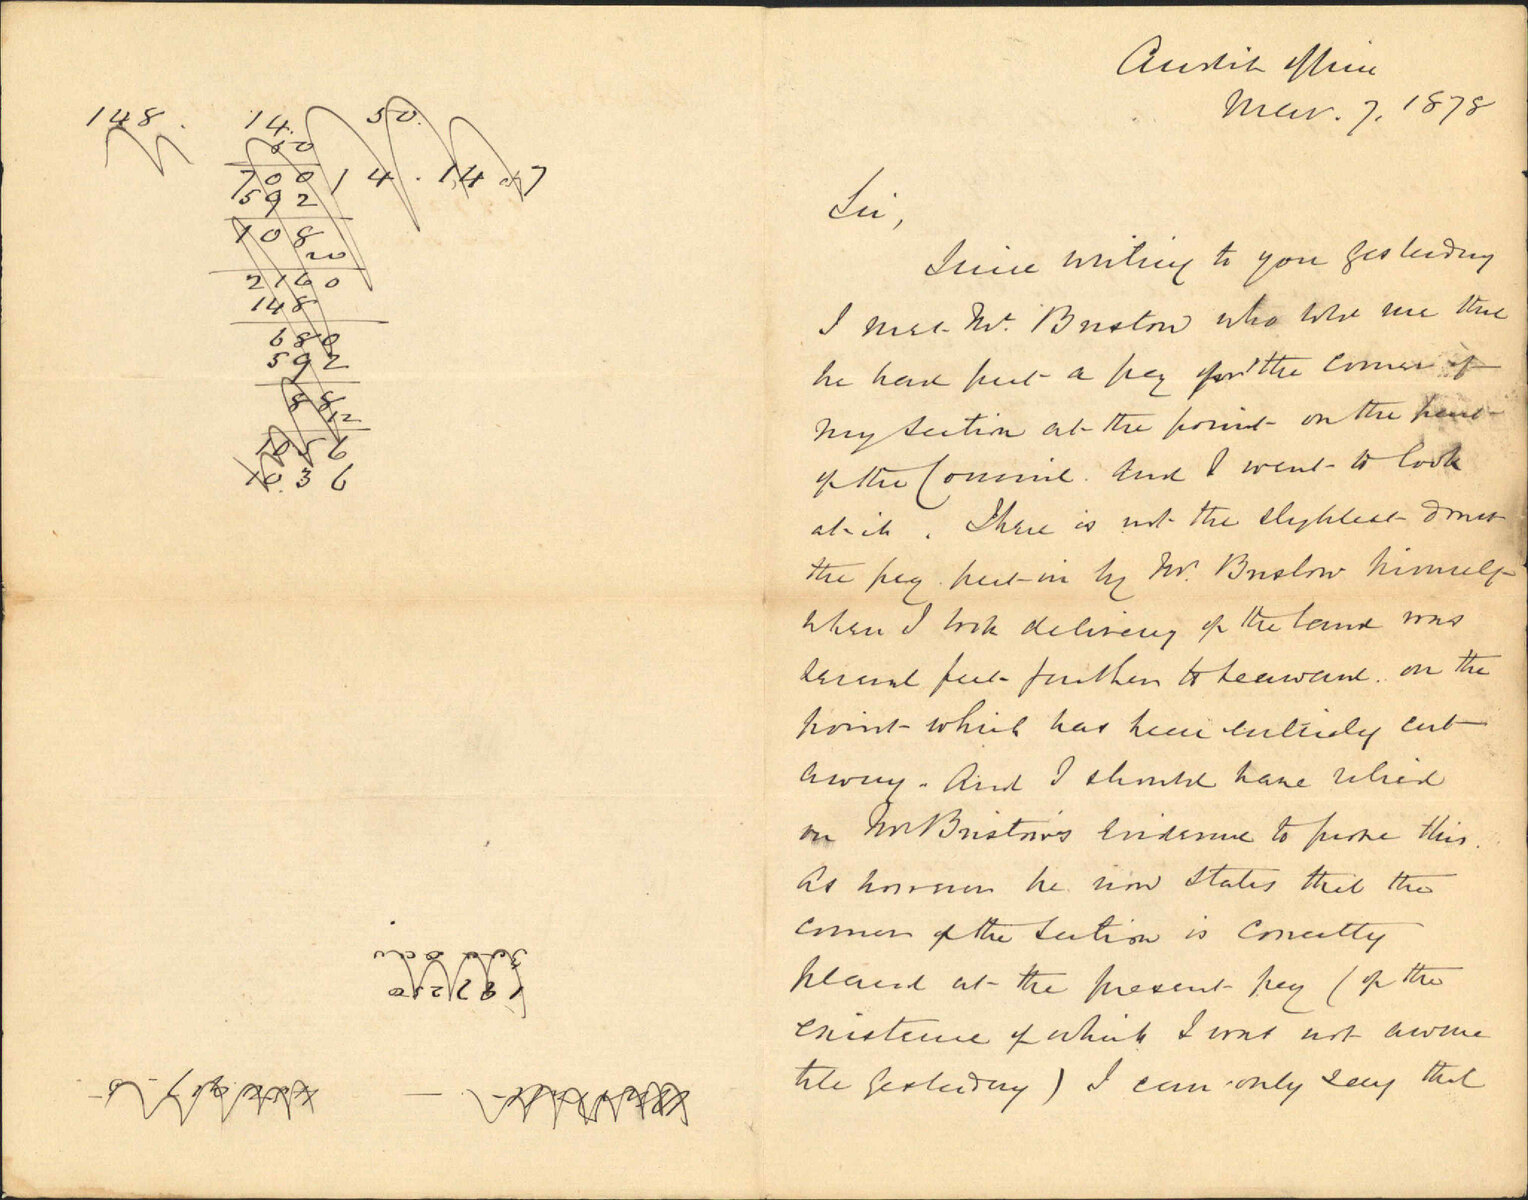 148.
14.
50.
50
700
14.14.7
592
108
20
2160
148
680
592
88
12
1056
1036
187250
Audit Office
Mar. 7, 1878
Sir,
Since writing to you yesterday
I met Mr. Bristow who told me that
he had put a peg for the corner of
my section at the point on the
of the Council. And I went to look
at it. There is not the slightest doubt
the peg put in by Mr. Bristow himself
when I took delivery of the land was
several feet further to seaward. on the
point which has been entirely cut
away. And I should have relied
on Mr Bristow's evidence to prove this.
As however he now states that the
corner of the section is correctly
placed at the present peg (of the
existence of which I was not aware
till yesterday) I can only say that